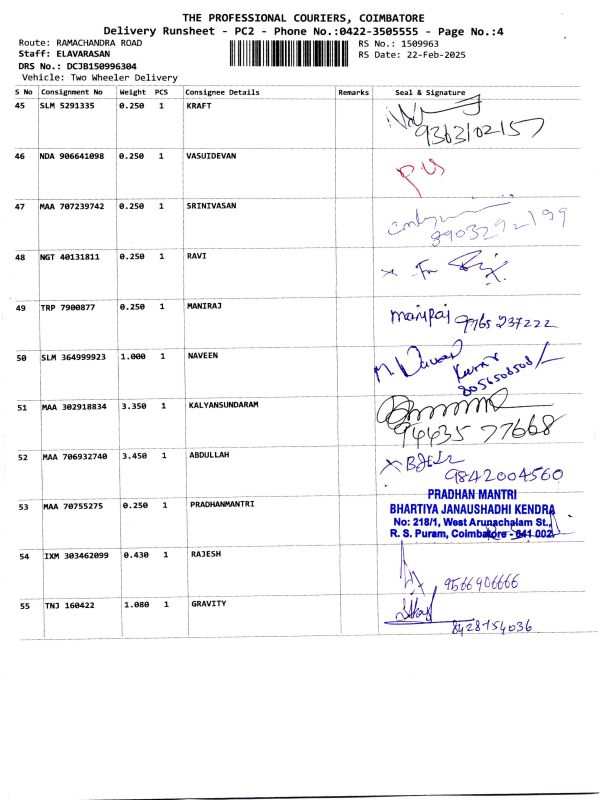 THE PROFESSIONAL COURIERS, COIMBATORE
Delivery Runsheet - PC2 - Phone No.:0422-3505555 - Page No.:4
Route: RAMACHANDRA ROAD RS No.: 1509963
Staff: ELAVARASAN RS Date: 22-Feb-2025
DRS No.: DCJB150996304
Vehicle: Two Wheeler Delivery
S No Consignment No Weight PCS Consignee Details Remarks Seal & Signature
45 SLM 5291335 0.250 1 KRAFT
9363102157
46 NDA 906641098 0.250 1 VASUIDEVAN
47 MAA 707239742 0.250 1 SRINIVASAN
8903292199
48 NGT 40131811 0.250 1 RAVI
49 TRP 7900877 0.250 1 MANIRAJ
maniraj 9965 237222
50 SLM 364999923 1.000 1 NAVEEN
8056506508
51 MAA 302918834 3.350 1 KALYANSUNDARAM
94435 77668
52 MAA 706932740 3.450 1 ABDULLAH
9842004560
53 MAA 70755275 0.250 1 PRADHANMANTRI
PRADHAN MANTRI
BHARTIYA JANAUSHADHI KENDRA
No: 218/1, West Arunachalam St.,
R. S. Puram, Coimbatore - 641 002.
54 IXM 303462099 0.430 1 RAJESH
9566906666
55 TNJ 160422 1.080 1 GRAVITY
8428154036